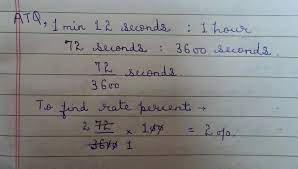 ATQ, 1 min 12 seconds : 1 hour
72 seconds : 3600 seconds.
72 seconds.
3600
To find rate percent →
2 72 x 100 = 2%.
3600 1